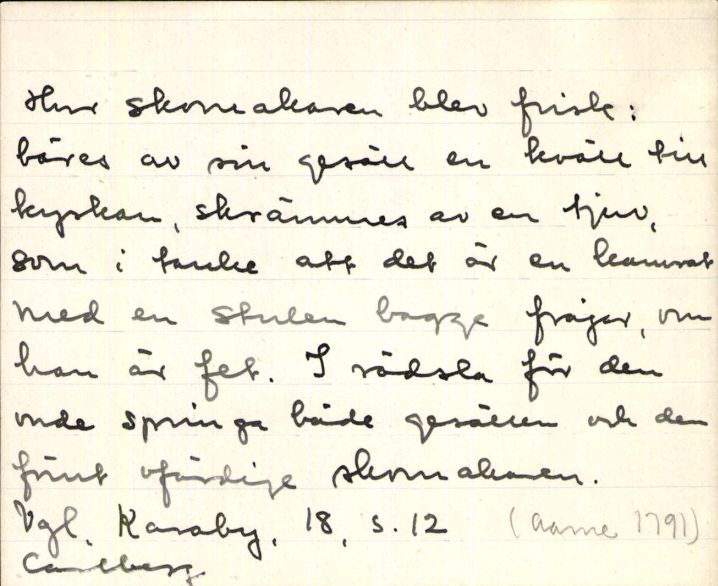 Hur skomakaren blev frisk:
bäres av sin gesäll en kväll till
kyrkan, skrämmes av en tjuv,
som i tanke att det är en kamrat
med en stulen bagge frågar, om
han är fet. I rädsla för den
onde springa både gesällen och den
förut ofärdige skomakaren.
Vgl, Karaby, 18, s. 12 (Aarne 1791)
Carlberg